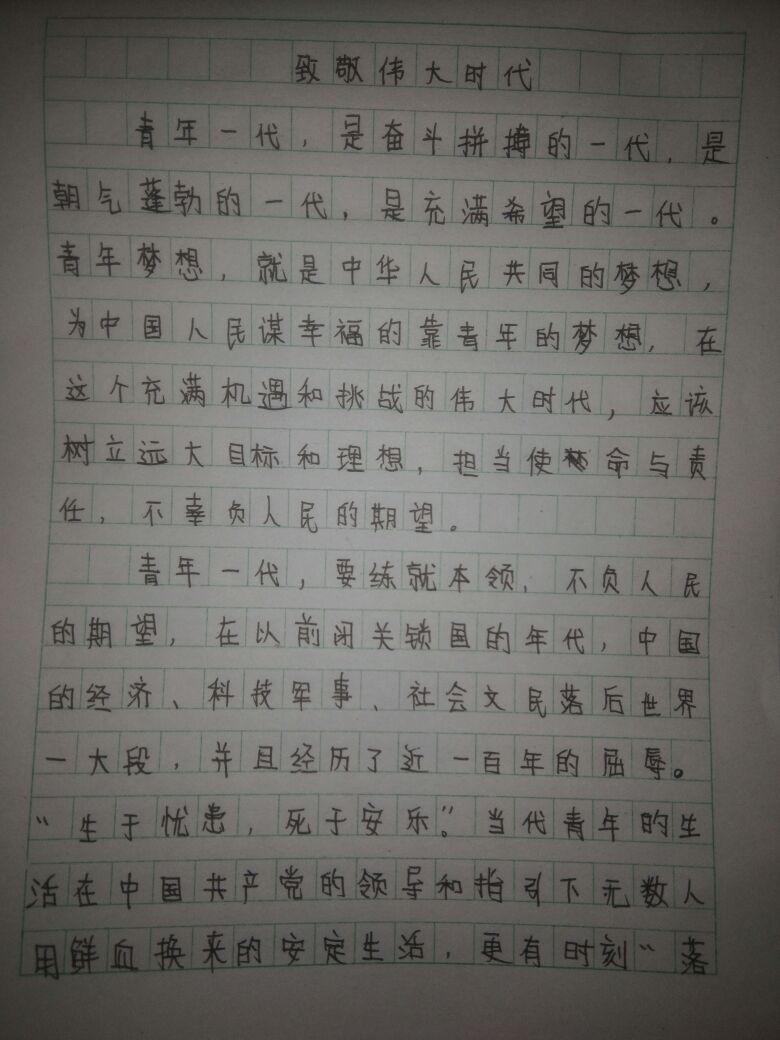 致敬伟大时代
青年一代，是奋斗拼搏的一代，是
朝气蓬勃的一代，是充满希望的一代。
青年梦想，就是中华人民共同的梦想，
为中国人民谋幸福的靠青年的梦想，在
这个充满机遇和挑战的伟大时代，应该
树立远大目标和理想，担当使命与责
任，不辜负人民的期望。
青年一代，要练就本领，不负人民
的期望，在以前闭关锁国的年代，中国
的经济、科技军事、社会文民落后世界
一大段，并且经历了近一百年的屈辱。
“生于忧患，死于安乐”。当代青年的生
活在中国共产党的领导和指引下无数人
用鲜血换来的安定生活，更有时刻“落